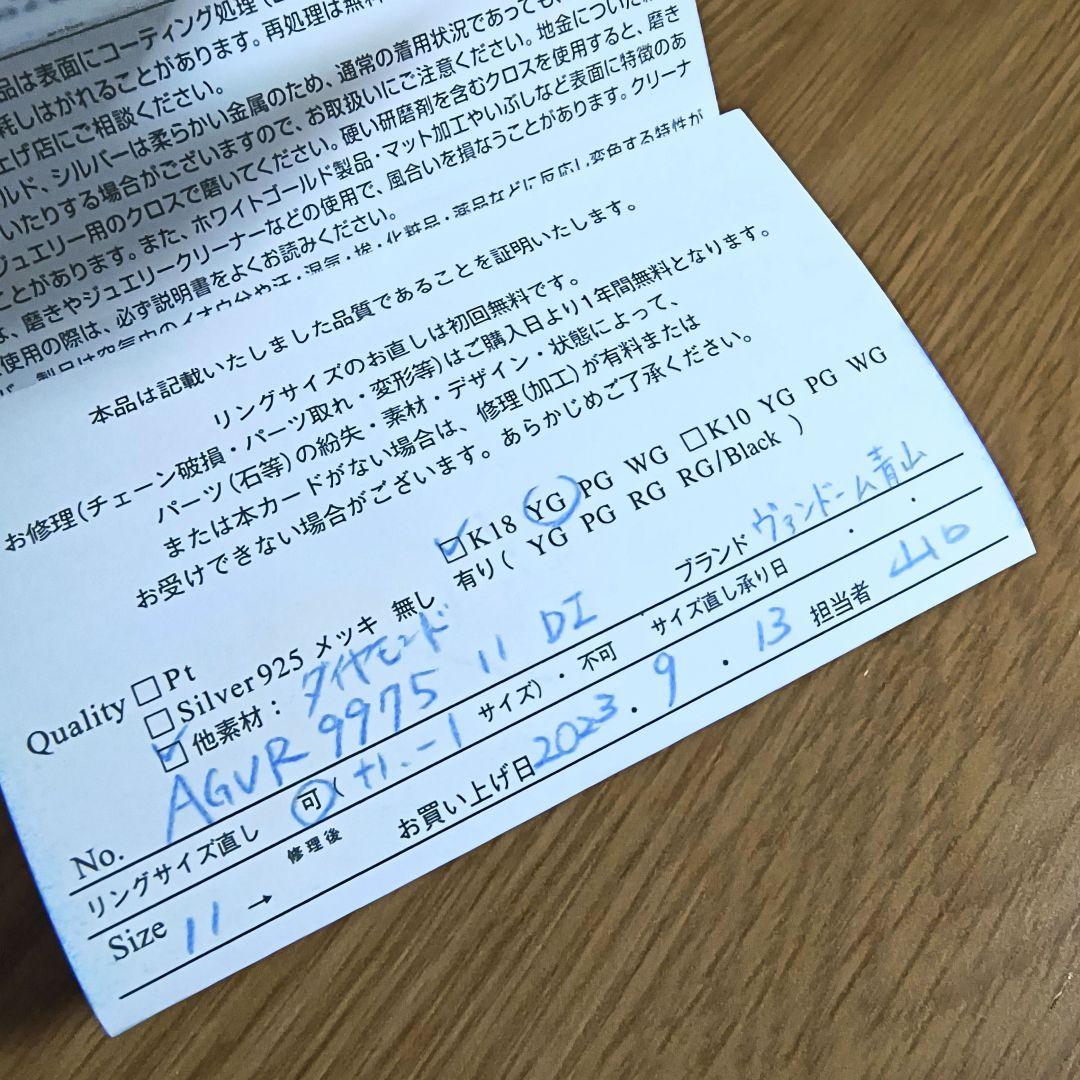 品は表面にコーティング処理
耗しはがれることがあります。再処理は無料
上げ店にご相談ください。
ルド、シルバーは柔らかい金属のため、通常の着用状況であっても、
いたりする場合がございますので、お取扱いにご注意ください。地金についた
ジュエリー用のクロスで磨いてください。硬い研磨剤を含むクロスを使用すると、磨き
ことがあります。また、ホワイトゴールド製品・マット加工やいぶしなど表面に特徴のあ
は、磨きやジュエリークリーナーなどの使用で、風合いを損なうことがあります。クリーナ
使用の際は、必ず説明書をよくお読みください。
製品は空気中のイオウ分や汗・湿気・埃・化粧品・薬品などに反応し変色する特性が
本品は記載いたしました品質であることを証明いたします。
リングサイズのお直しは初回無料です。
お修理(チェーン破損・パーツ取れ・変形等)はご購入日より1年間無料となります。
パーツ(石等)の紛失・素材・デザイン・状態によって、
または本カードがない場合は、修理(加工)が有料または
お受けできない場合がございます。あらかじめご了承ください。
Quality □Pt ☑K18 YG PG WG □K10 YG PG WG
□Silver925 メッキ 無し 有り( YG PG RG RG/Black )
☑他素材: ダイヤモンド ブランド ヴァンドーム青山
No. AGVR 9975 11 DI
リングサイズ直し 可( +1. -1 サイズ)・不可 サイズ直し承り日 . .
Size 11 → 修理後 お買い上げ日 2023. 9 . 13 担当者 山口